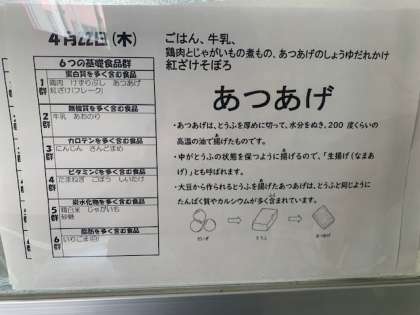 4月22日(木)
ごはん、牛乳、
鶏肉とじゃがいもの煮もの、あつあげのしょうゆだれかけ
紅ざけそぼろ
6つの基礎食品群
蛋白質を多く含む食品
1群
鶏肉 けずりぶし あつあげ
紅ざけ(フレーク)
無機質を多く含む食品
2群
牛乳 あおのり
カロテンを多く含む食品
3群
にんじん さんどまめ
ビタミンCを多く含む食品
4群
たまねぎ ごぼう しいたけ
炭水化物を多く含む食品
5群
精白米 じゃがいも
砂糖
脂肪を多く含む食品
6群
いりごま(白)
あつあげ
・あつあげは、とうふを厚めに切って、水分をぬき、200 度くらいの
高温の油で揚げたものです。
・中がとうふの状態を保つように揚げるので、「生揚げ(なまあ
げ)」とも呼ばれます。
・大豆から作られるとうふを揚げたあつあげは、とうふと同じように
たんぱく質やカルシウムが多く含まれています。
だいず
とうふ
あつあげ